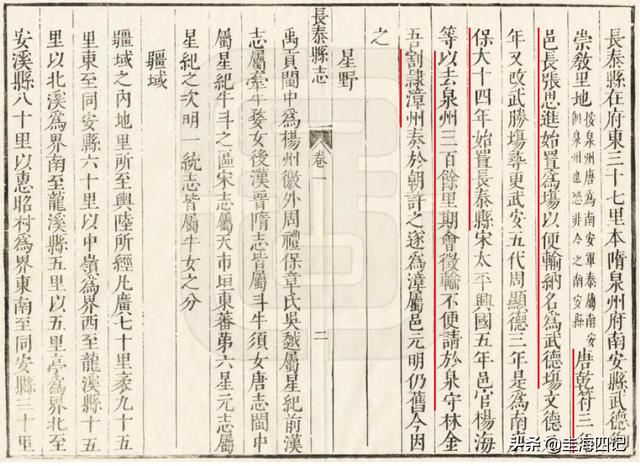 長泰縣在府東三十七里本隋泉州府南安縣武德
崇敎里地
按泉州唐為南安軍泰屬南安
泉州也恐非今之南安縣
唐乾符三
邑長張思進始置爲塲以便輸納名爲武德塲文德
年又改武勝塲尋更武安五代周顯德三年是爲南
保大十四年始置長泰縣宋太平興國五年邑官楊海
等以去泉州三百餘里期會徵輸不便請於泉守林金
吾割隸漳州奏於朝許之遂爲漳屬邑元明仍舊今因
之
星野
長泰縣志
卷一
二
禹貢閩中爲楊州徼外周禮保章氏吳越屬星紀前漢
志屬牽牛婺女後漢晉隋志皆屬斗牛須女唐志閩中
屬星紀牛斗之區宋志屬天市垣東蕃第六星元志屬
星紀之次明一統志皆屬牛女之分
疆域
疆域之內地里所至輿陸所經凡廣七十里袤九十五
里東至同安縣六十里以中嶺爲界西至龍溪縣十五
里以北溪爲界南至龍溪縣五里以五里亭爲界北至
安溪縣八十里以惠昭村爲界東南至同安縣三十里
头条 @圭海四记